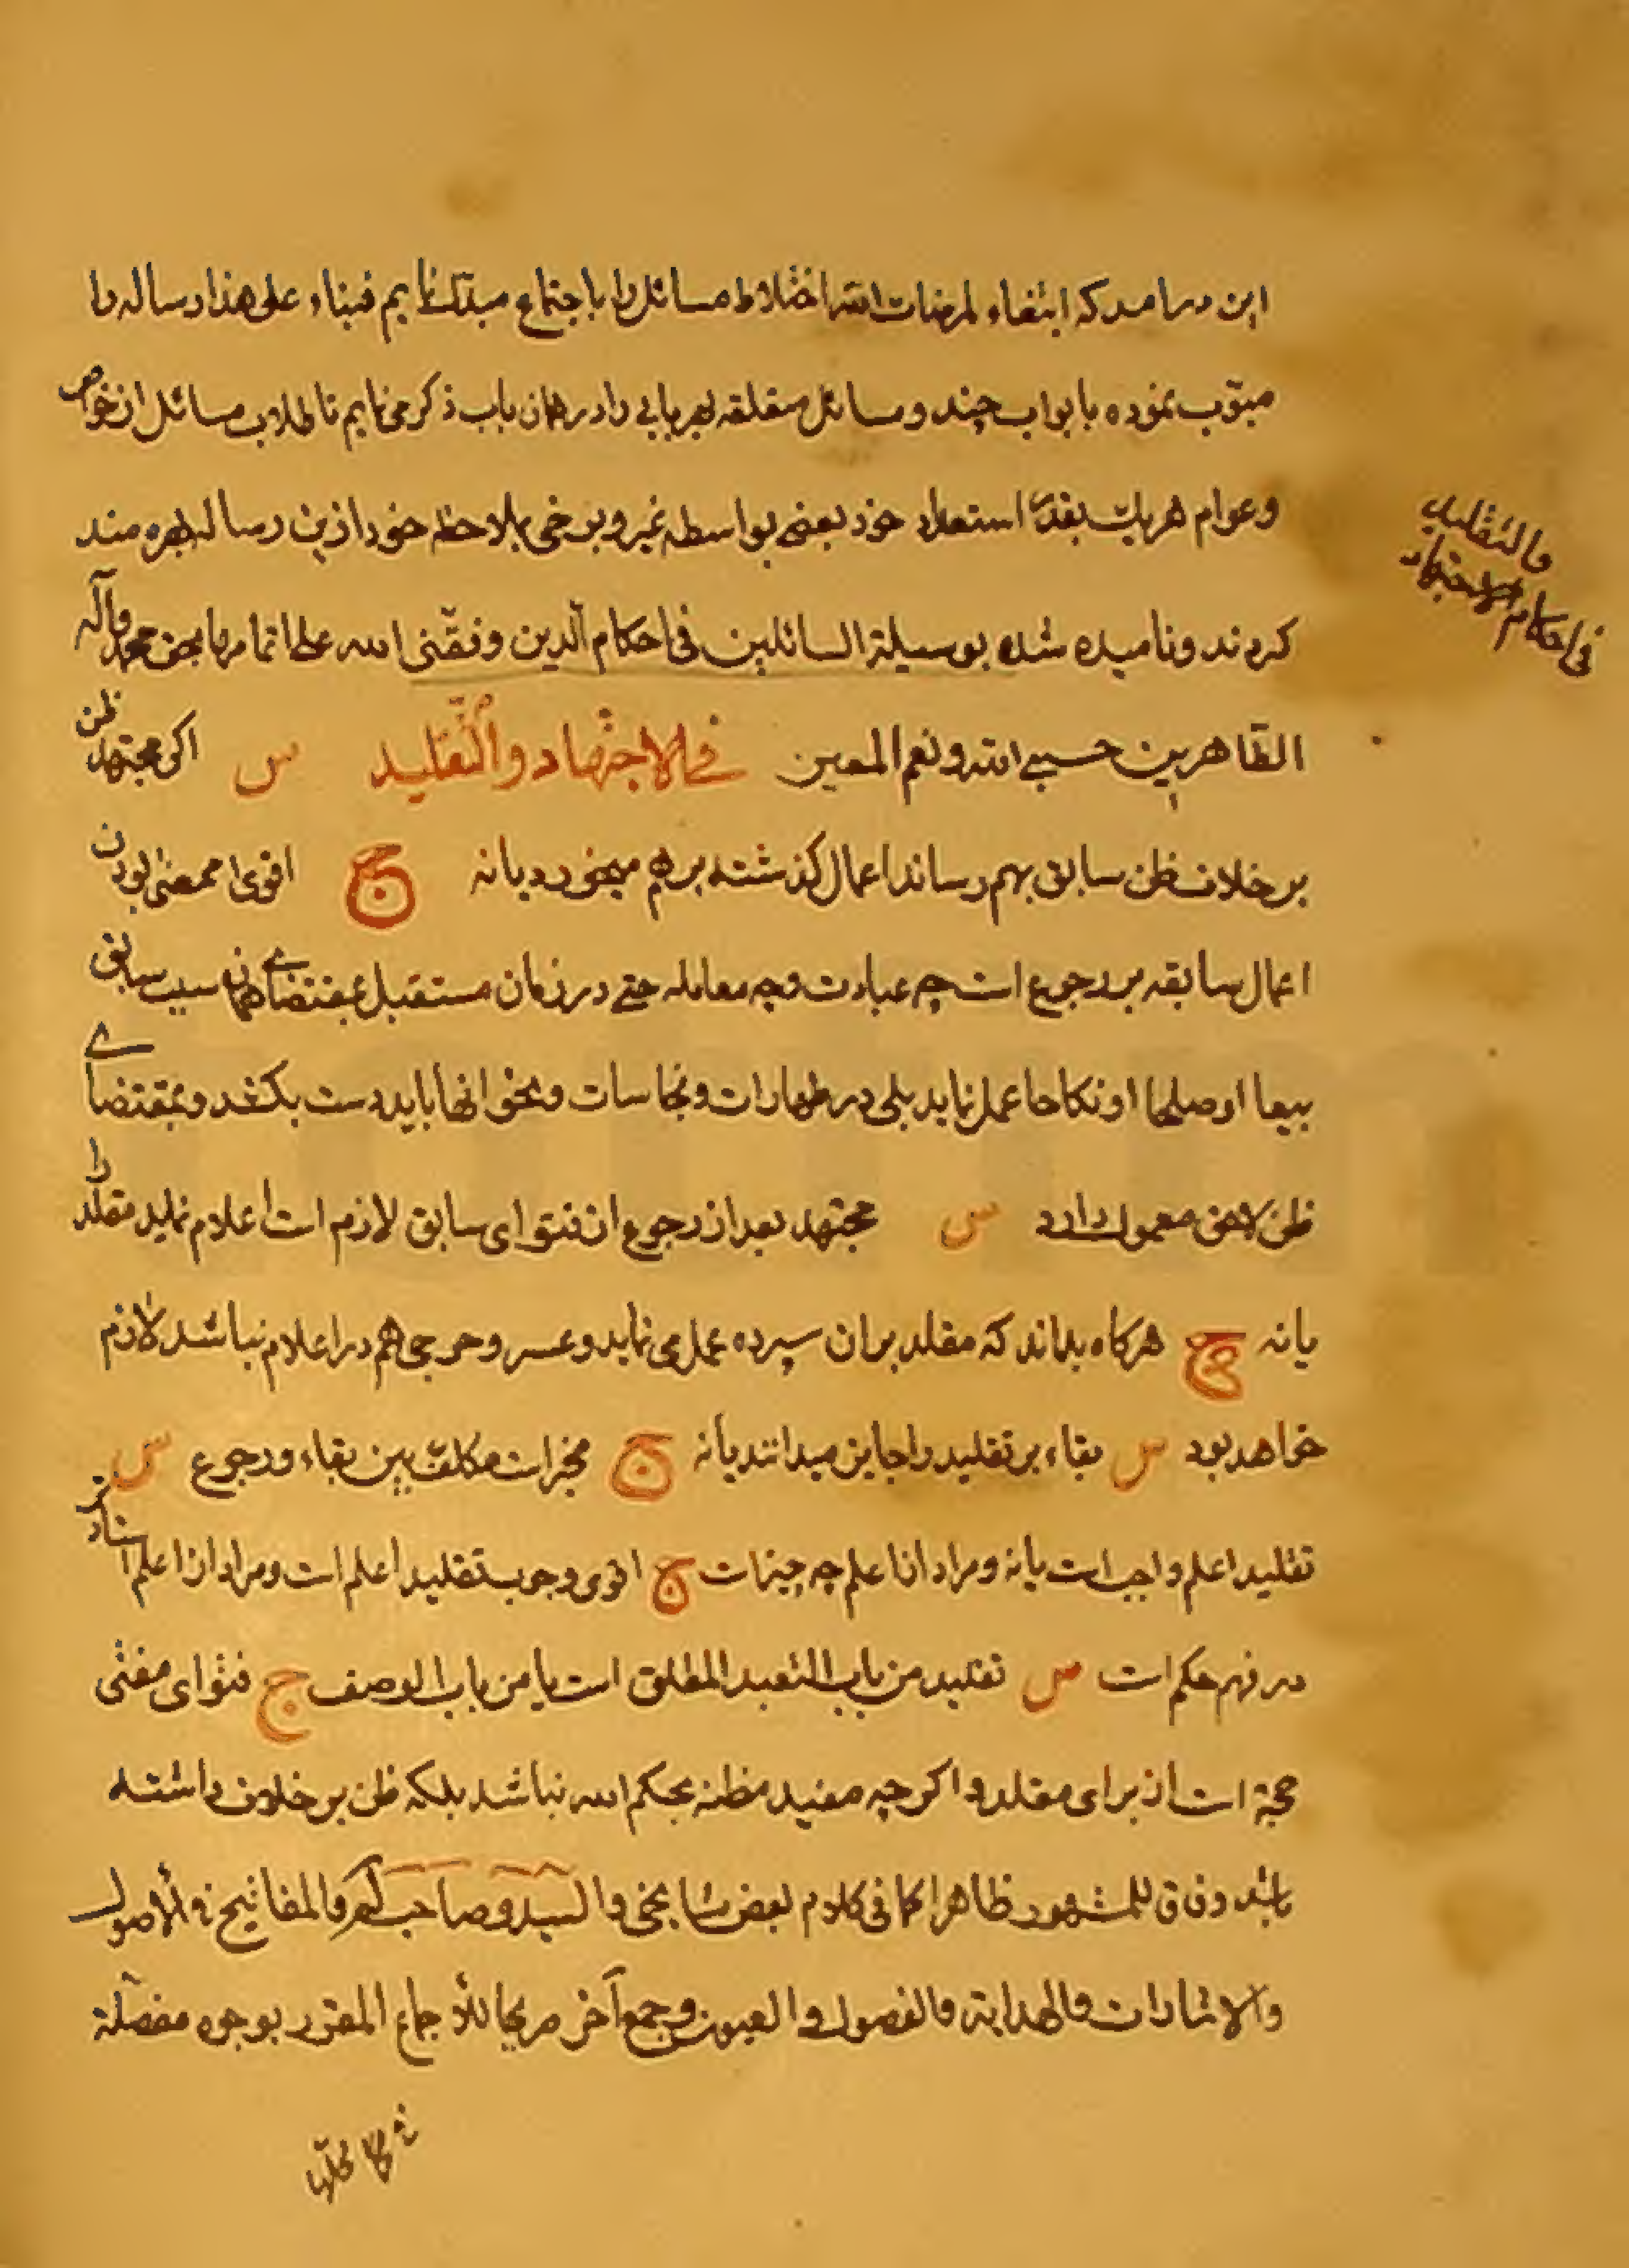 این درامد که ابتغاء لمرضات الله اختلاط مسائل را باجتماع مبدل نمایم فبناء علی هذا رساله را
مبوّب نموده بابواب چند و مسائل متعلقه بهر بابی را در همان باب ذکر می نمایم تا طلاب مسائل از خواص
وعوام هریک بقدر استعداد خود بعضی بواسطه غیر و برخی بملاحظه خود ازین رساله بهره مند
کردند ونامیده شده بوسیلة السائلین فی احکام الدین وفقنی الله علی اتمامها بحق محمد وآله
الطاهرین حسبی الله ونعم المعین فی الاجتهاد والتقلید س اکر مجتهد ظن
بر خلاف ظن سابق بهم رساند اعمال کذشته برهم میخورد یا نه ج اقوی ممضی بودن
اعمال سابقه بر رجوع است چه عبادت وچه معامله حتی در زمان مستقبل بمقتضای همان سبب سابق
بیعا او صلحا او نکاحا عمل نماید بلی در طهارات ونجاسات ونحو انها باید دست بکشد وبمقتضای
ظن لاحق معمول دارد س مجتهد بعد از رجوع از فتوای سابق لازم است اعلام نماید مقلد را
یا نه ج هرکاه بداند که مقلد بران سپرده عمل می نماید وعسر وحرجی هم در اعلام نباشد لازم
خواهد بود س بقاء بر تقلید را جایز میدانند یا نه ج مخیر است مکلف بین بقاء ورجوع س
تقلید اعلم واجب است یا نه ومراد از اعلم چه چیز است ج اقوی وجوب تقلید اعلم است ومراد از اعلم استادتر
در فهم حکم است س تقلید من باب التعبد المطلق است یا من باب الوصف ج فتوای مفتی
حجة است از برای مقلد و اکرچه مفید مظنه بحکم الله نباشد بلکه ظن بر خلاف داشته
باشد وفاقا للمشهور ظاهرا کما فی کلام بعض مشایخی والسید وصاحب والمفاتیح والاصول
والاشارات والهدایة والفصول والعیون وجمع آخر صریحا للاجماع المقرر بوجوه مفصلة
والتقلید
فی احکام الاجتهاد
فی محلها